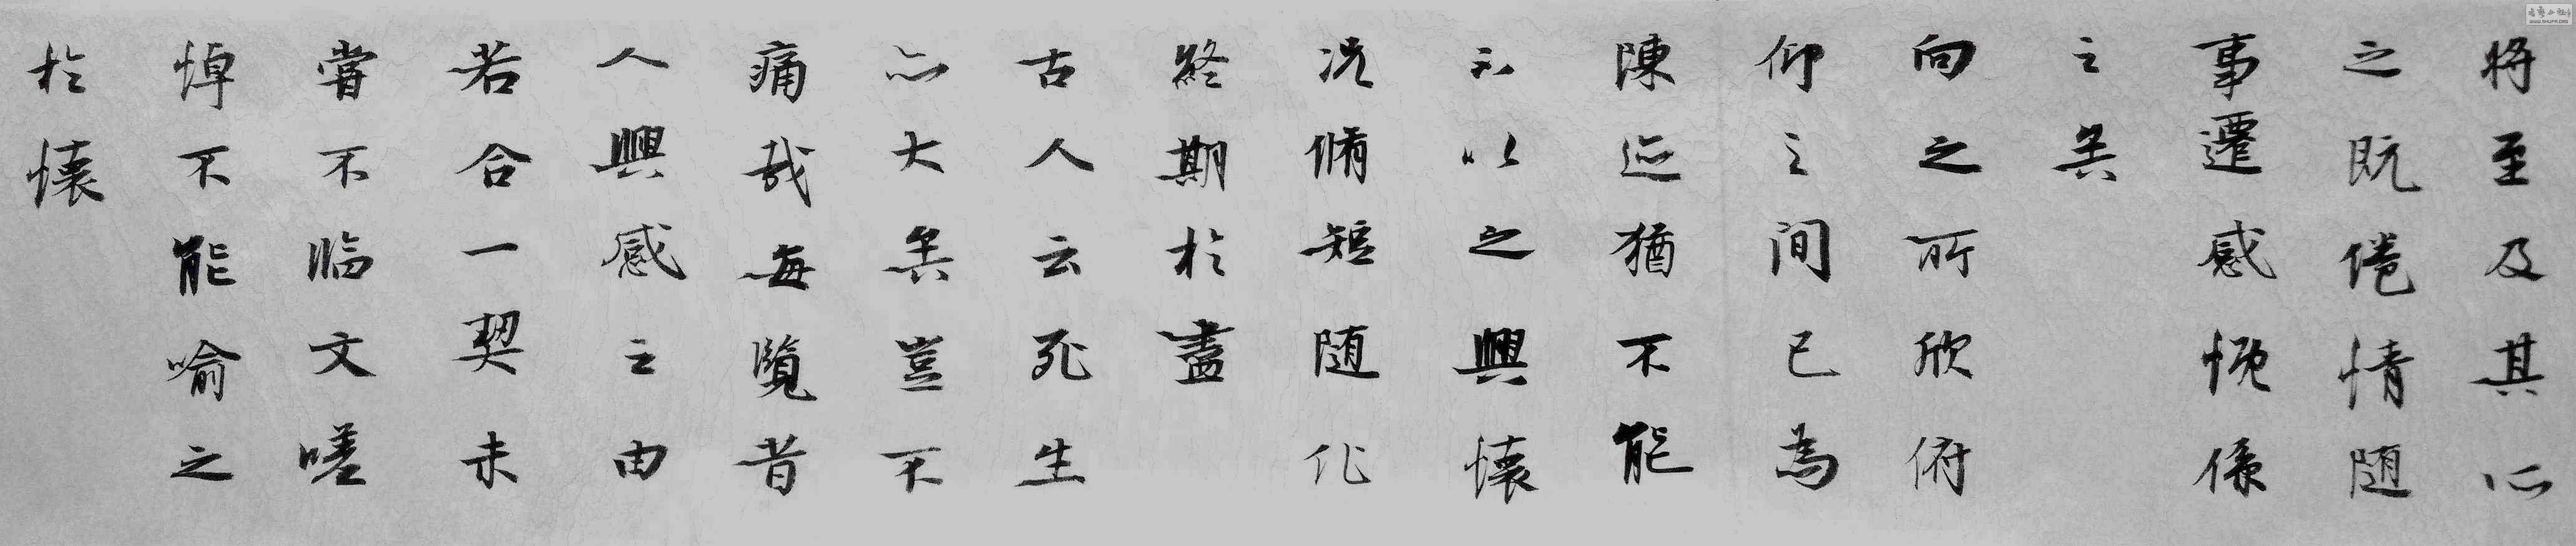 将至及其所
之既倦情随
事遷感慨係
之矣
向之所欣俯
仰之間已為
陳迹猶不能
不以之興懷
况脩短随化
終期於盡
古人云死生
亦大矣豈不
痛哉每覽昔
人興感之由
若合一契未
嘗不臨文嗟
悼不能喻之
於懷
WWW.SHUFA.ORG